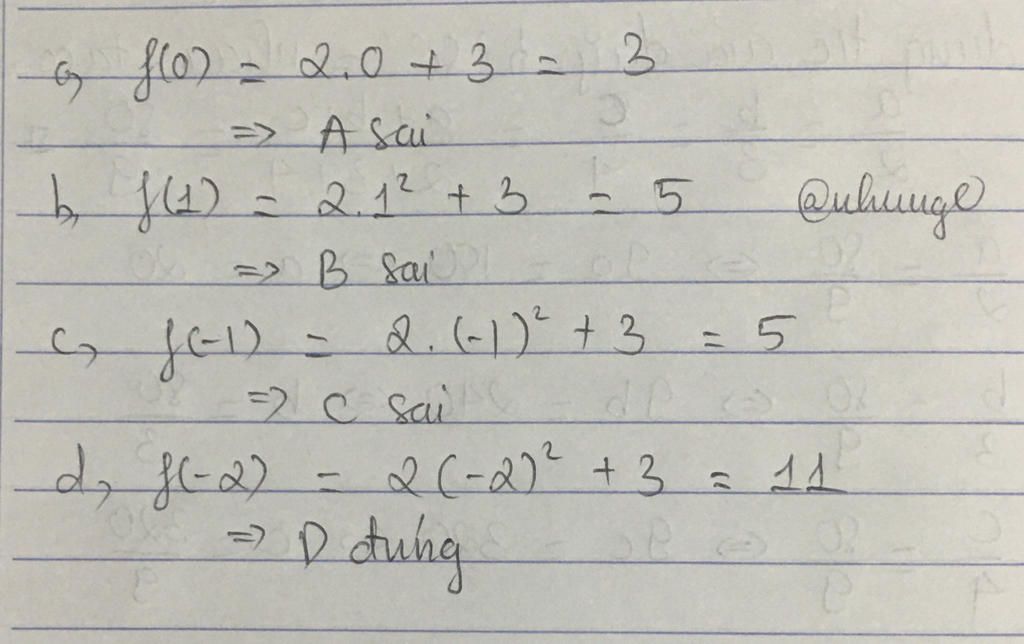 a, f(0) = 2.0 + 3 = 3
=> A sai
b, f(1) = 2.1² + 3 = 5 @nhunge
=> B sai
c, f(-1) = 2.(-1)² + 3 = 5
=> C sai
d, f(-2) = 2(-2)² + 3 = 11
=> D đung